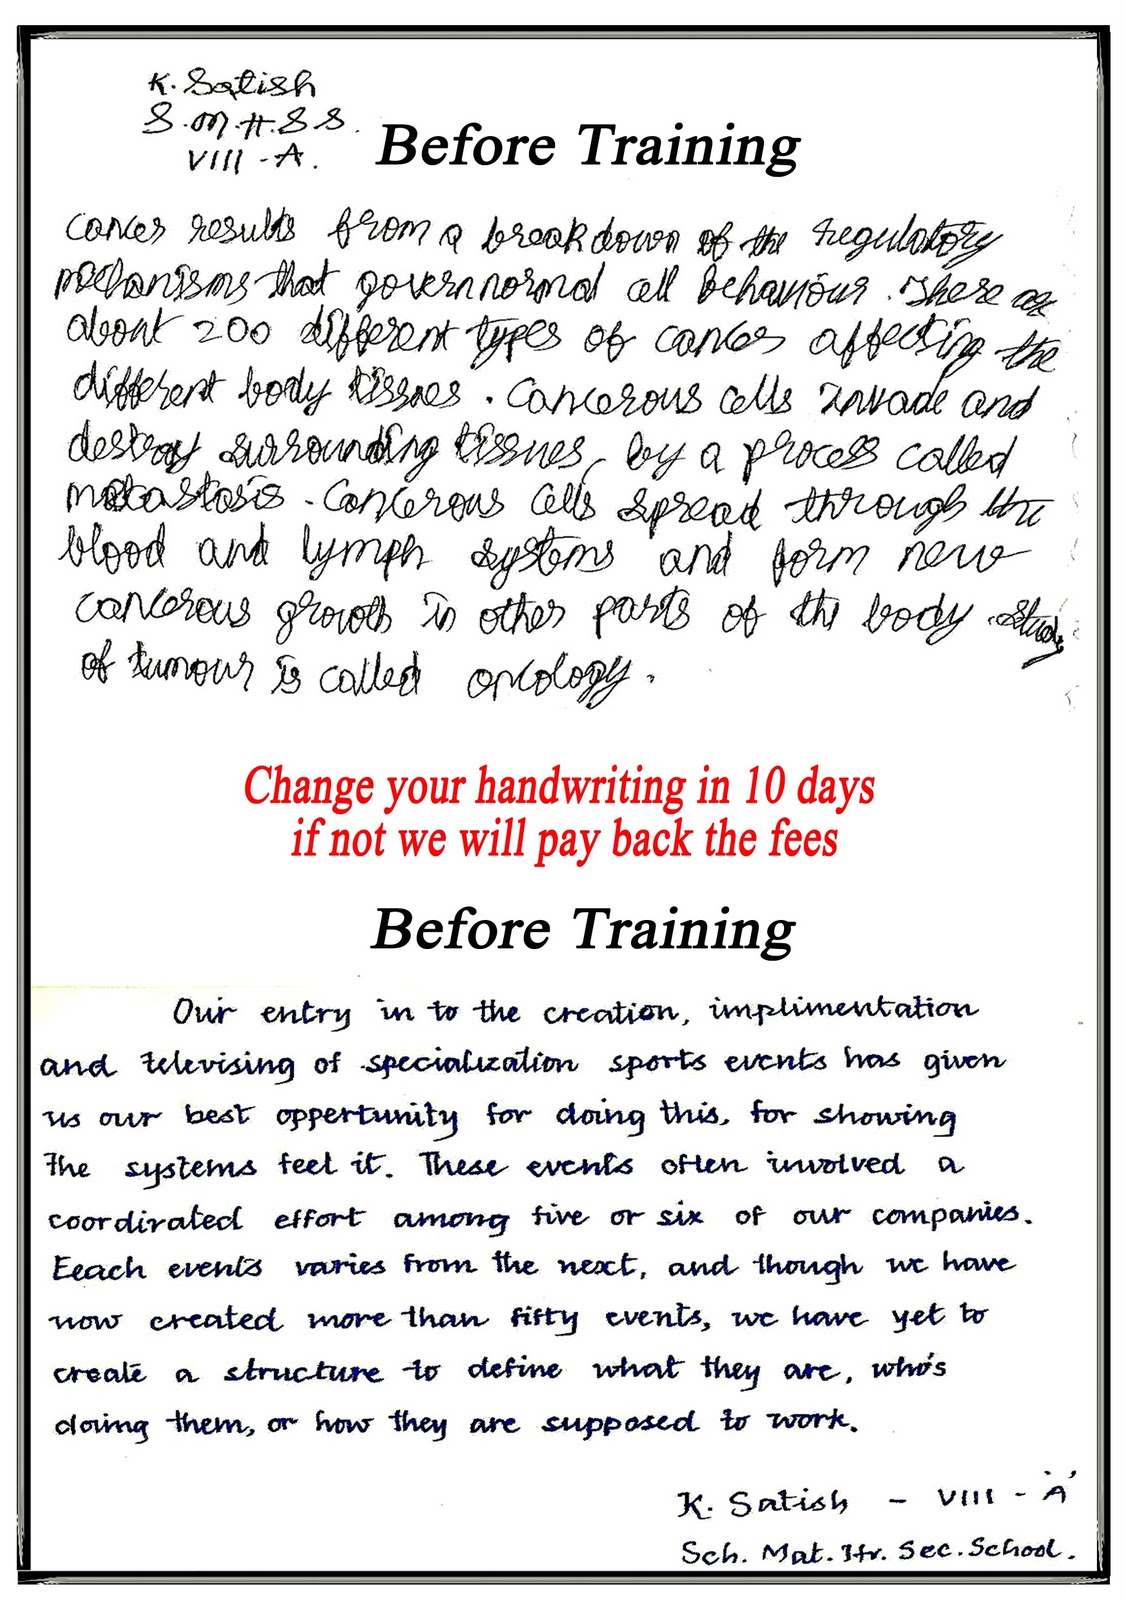 K. Satish
S.M.H.S.S.
VIII - A.
Before Training
Cancer results from a breakdown of the regulatory
mechanisms that govern normal cell behaviour. There are
about 200 different types of cancer affecting the
different body tissues. Cancerous cells invade and
destroy surrounding tissues, by a process called
metastasis. Cancerous cells spread through the
blood and lymph systems and form new
cancerous growth in other parts of the body. Study
of tumour is called oncology.
Change your handwriting in 10 days
if not we will pay back the fees
Before Training
Our entry in to the creation, implimentation
and televising of specialization sports events has given
us our best oppertunity for doing this, for showing
the systems feel it. These events often involved a
coordirated effort among five or six of our companies.
Eeach events varies from the next, and though we have
now created more than fifty events, we have yet to
create a structure to define what they are, who's
doing them, or how they are supposed to work.
K. Satish - VIII - 'A'
Sch. Mat. Hr. Sec. School.